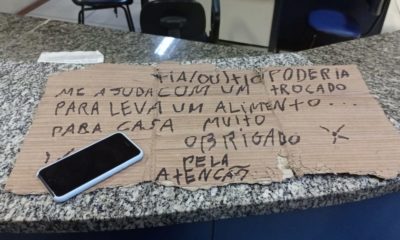 TIA/OU/TIO PODERIA
ME AJUDA COM UM TROCADO
PARA LEVA UM ALIMENTO...
PARA CASA MUITO
OBRIGADO
PELA
ATENCÃO